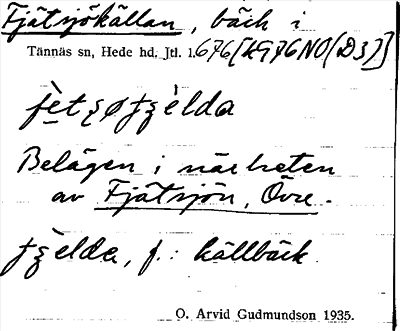 Fjätsjökällan, bäck i
Tännäs sn, Hede hd, Jtl. l. 676 [kG76NO(D3)]
Belägen i närheten
av Fjätsjön, Övre.
f.: källbäck.
O. Arvid Gudmundson 1935.